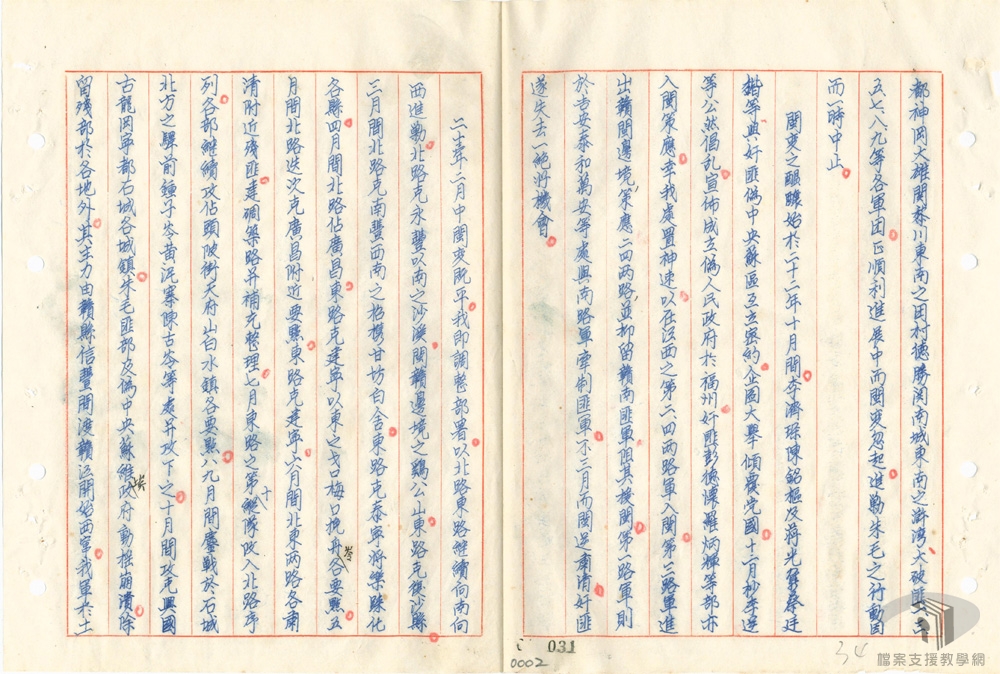 都神岡大雄関黎川東南之団村德勝関南城東南之滸灣大破匪三
五七八九等各軍団正順利進展中而閩變忽起進勦朱毛之行動因
而一時中止
閩變之醞釀始於二十二年十月間李濟琛陳銘樞及蔣光鼐蔡廷
鍇等與奸匪偽中央蘇區互立密約企圖大舉傾覆党國十一月杪李逆
等公然倡乱宣佈成立偽人民政府於福州奸匪彭德懷羅炳輝等部亦
入閩策應幸我廣置神速以在江西之第二四兩路軍入閩第三路軍進
出贛閩邊境策應二四兩路並抑留贛南匪軍阻其援閩第 路軍則
於吉安泰和萬安等處與南路軍牽制匪軍不三月而閩逆肅清奸匪
遂失去一絕好機會
二十三年二月中閩變既平我即調整部署以北路東路継續向南向
西進勦北路克永豐以南之沙溪閩贛邊境之鷄公山東路克徐沙縣
三月間北路克南豐西南之 甘坊白舍東路克泰寧将樂歸化
各縣四月間北路佔廣昌東路克建寧以東之弋口梅口挽舟岺要點五
月間北路迭次克廣昌附近要點東路克建寧六月間北東兩路各肅
清附近殘匪建碉築路并補充整理七月東路之第十縱隊改入北路序
列各部継續攻佔頭陂衝天府山白水鎮各要點八九月間鏖戰於石城
北方之驛前鍾子岺黃泥寨陳古岺等處并攻下之十月間攻克興國
古龍岡寧都石城各城鎮朱毛匪部及偽中央蘇維埃政府動搖崩潰除
留殘部於各地外其主力由贛縣信豐間渡贛江開始西竄我軍於土
031
0002
34
檔案支援教學網